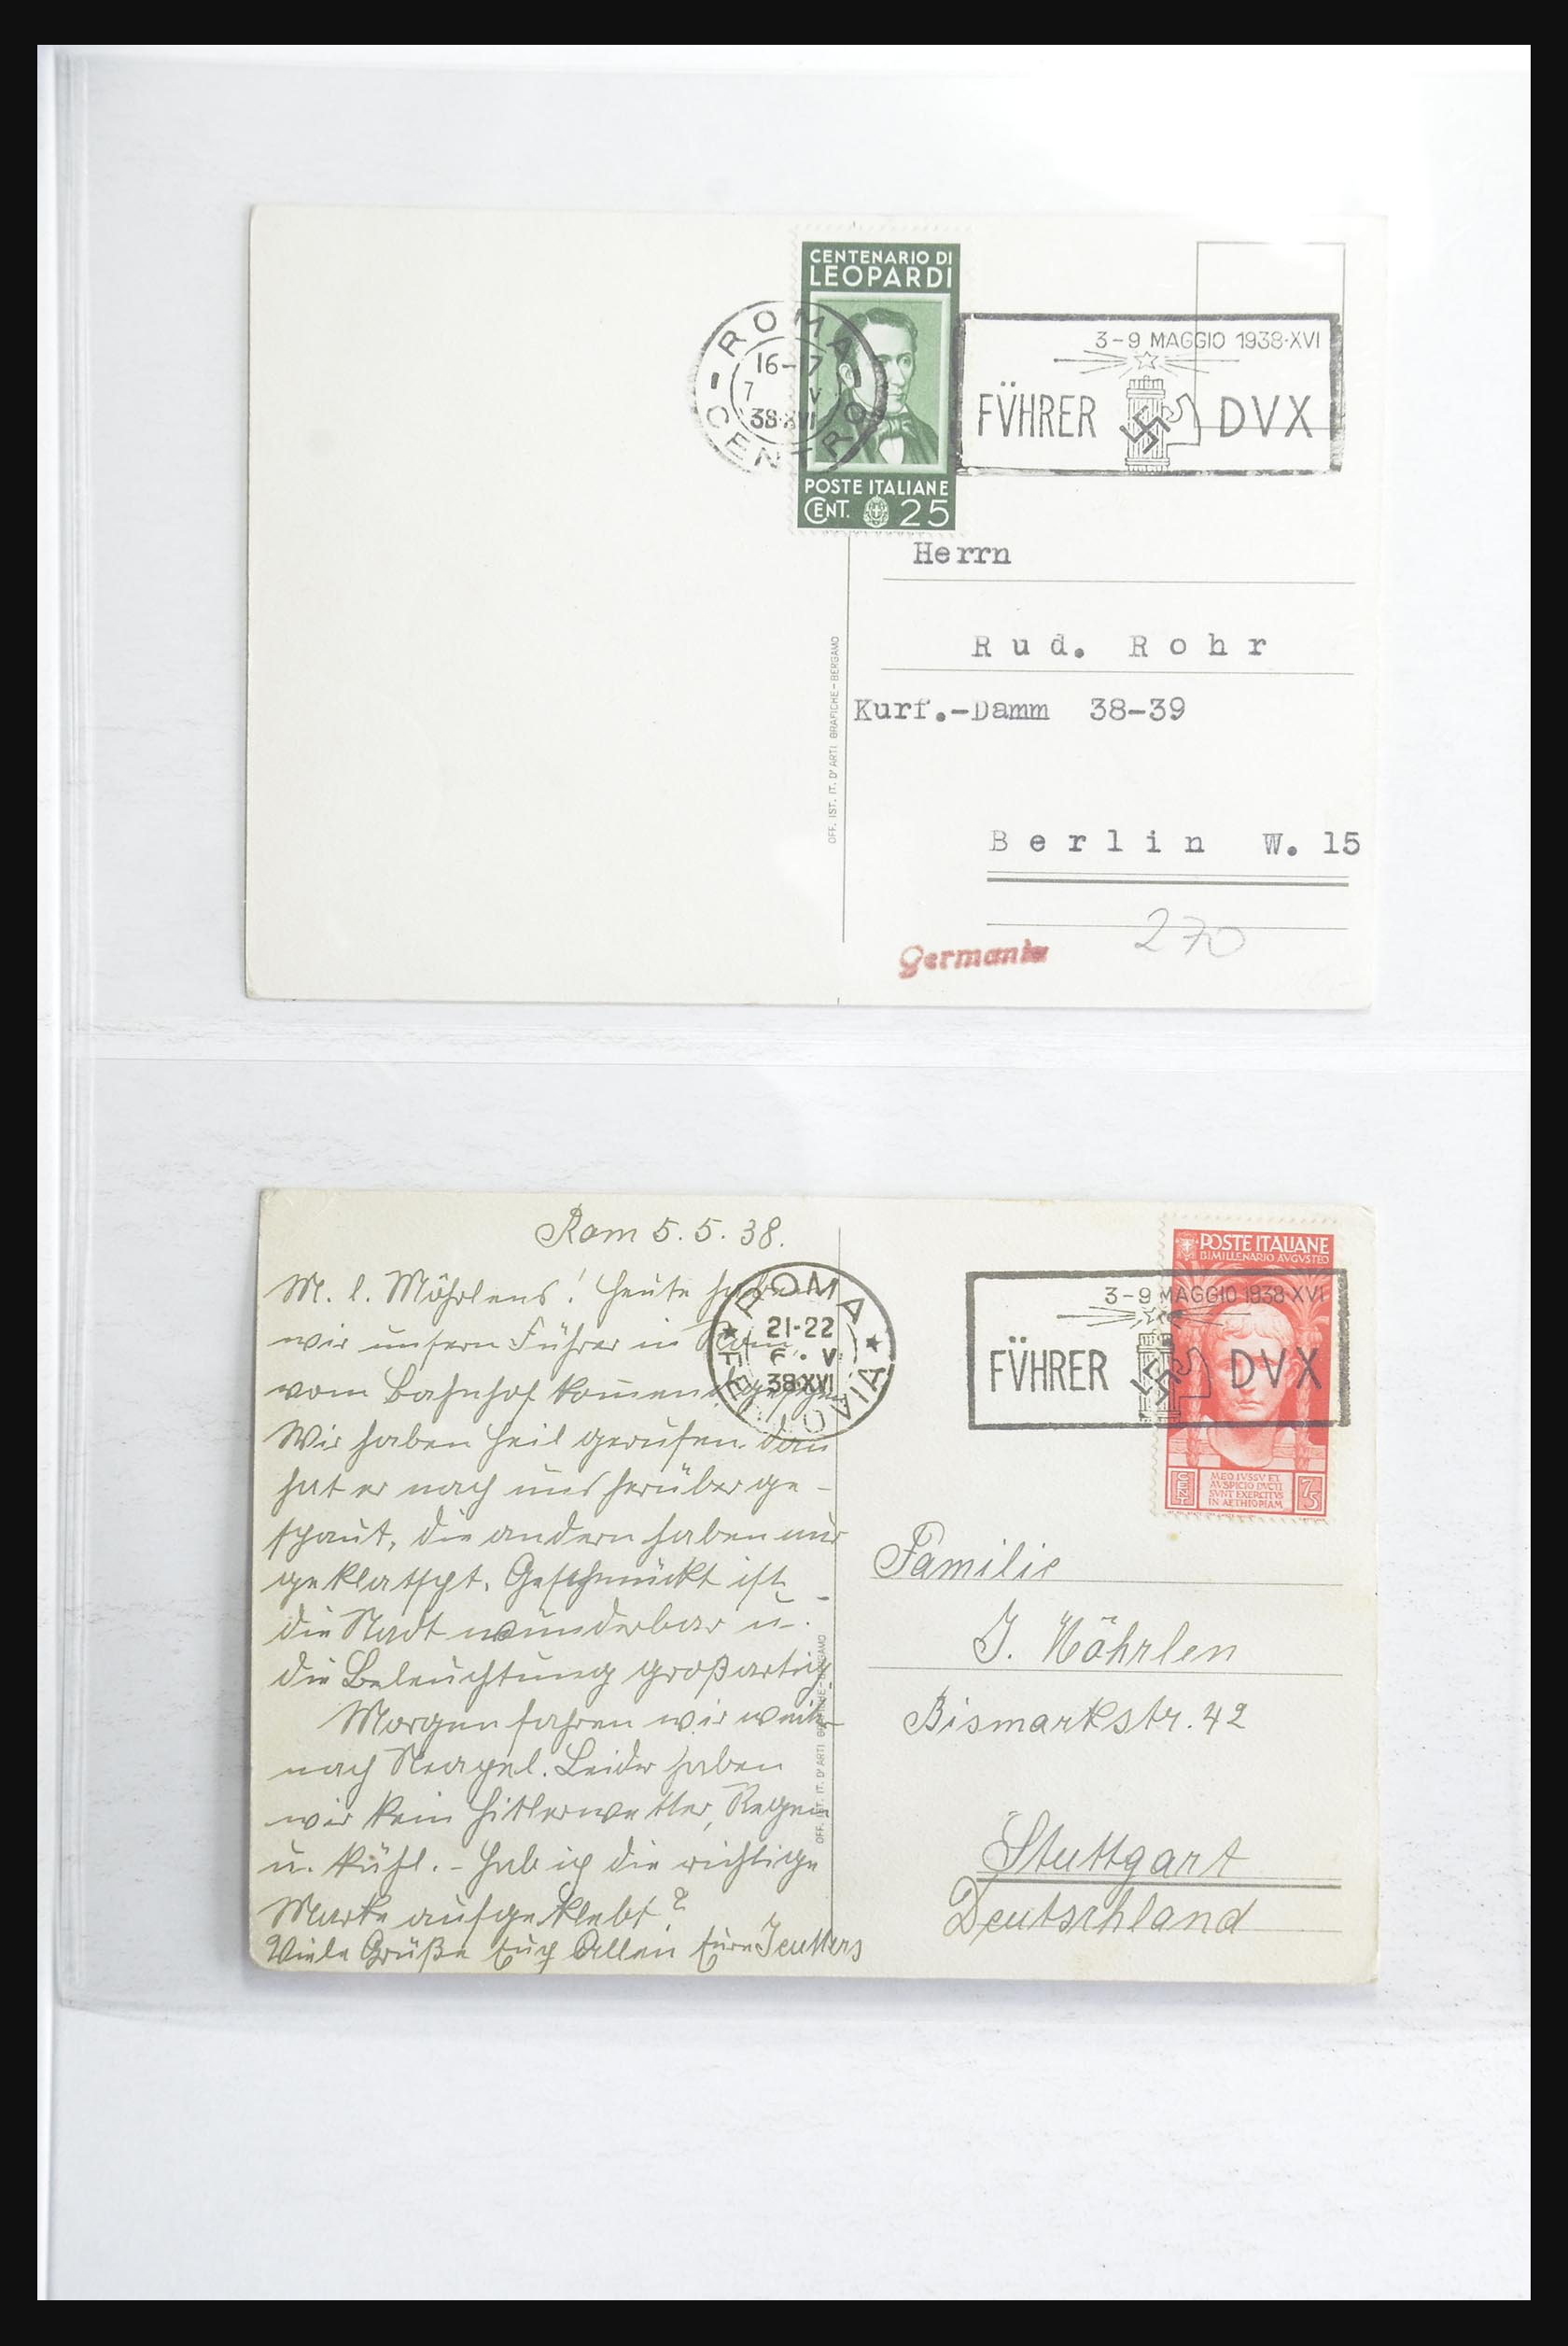 CENTENARIO DI
LEOPARDI
POSTE ITALIANE
CENT. 25
ROMA
CENTRO
16-17
7 V
38·XVI
3-9 MAGGIO 1938·XVI
FÜHRER DVX
Herrn
Rud. Rohr
Kurf.-Damm 38-39
Berlin W. 15
270
Germania
OFF. IST. IT. D'ARTI GRAFICHE-BERGAMO
Rom 5.5.38.
M. l. Möhrlens! Heute haben
wir unsern Führer in Rom,
vom Bahnhof kommend gesehen
Wir haben Heil gerufen. dan
hat er nach uns herüber ge-
schaut, die andern haben nur
geklatscht. Geschmückt ist
die Stadt wunderbar u.
die Beleuchtung großartig.
Morgen fahren wir weiter
nach Neapel. Leider haben
wir kein Hitlerwetter, Regen
u. kühl. - Hab ich die richtige
Marke aufgeklebt?
Viele Grüße Euch Allen Eure Jeutters
ROMA
FERROVIA
21-22
6·V
38·XVI
3-9 MAGGIO 1938·XVI
FÜHRER DVX
POSTE ITALIANE
BIMILLENARIO AVGVSTEO
MEO IVSSV ET
AVSPICIO DVCTI
SVNT EXERCITVS
IN AETHIOPIAM
CENT 75
Familie
J. Möhrlen
Bismarkstr. 42
Stuttgart
Deutschland
OFF. IST. IT. D'ARTI GRAFICHE-BERGAMO